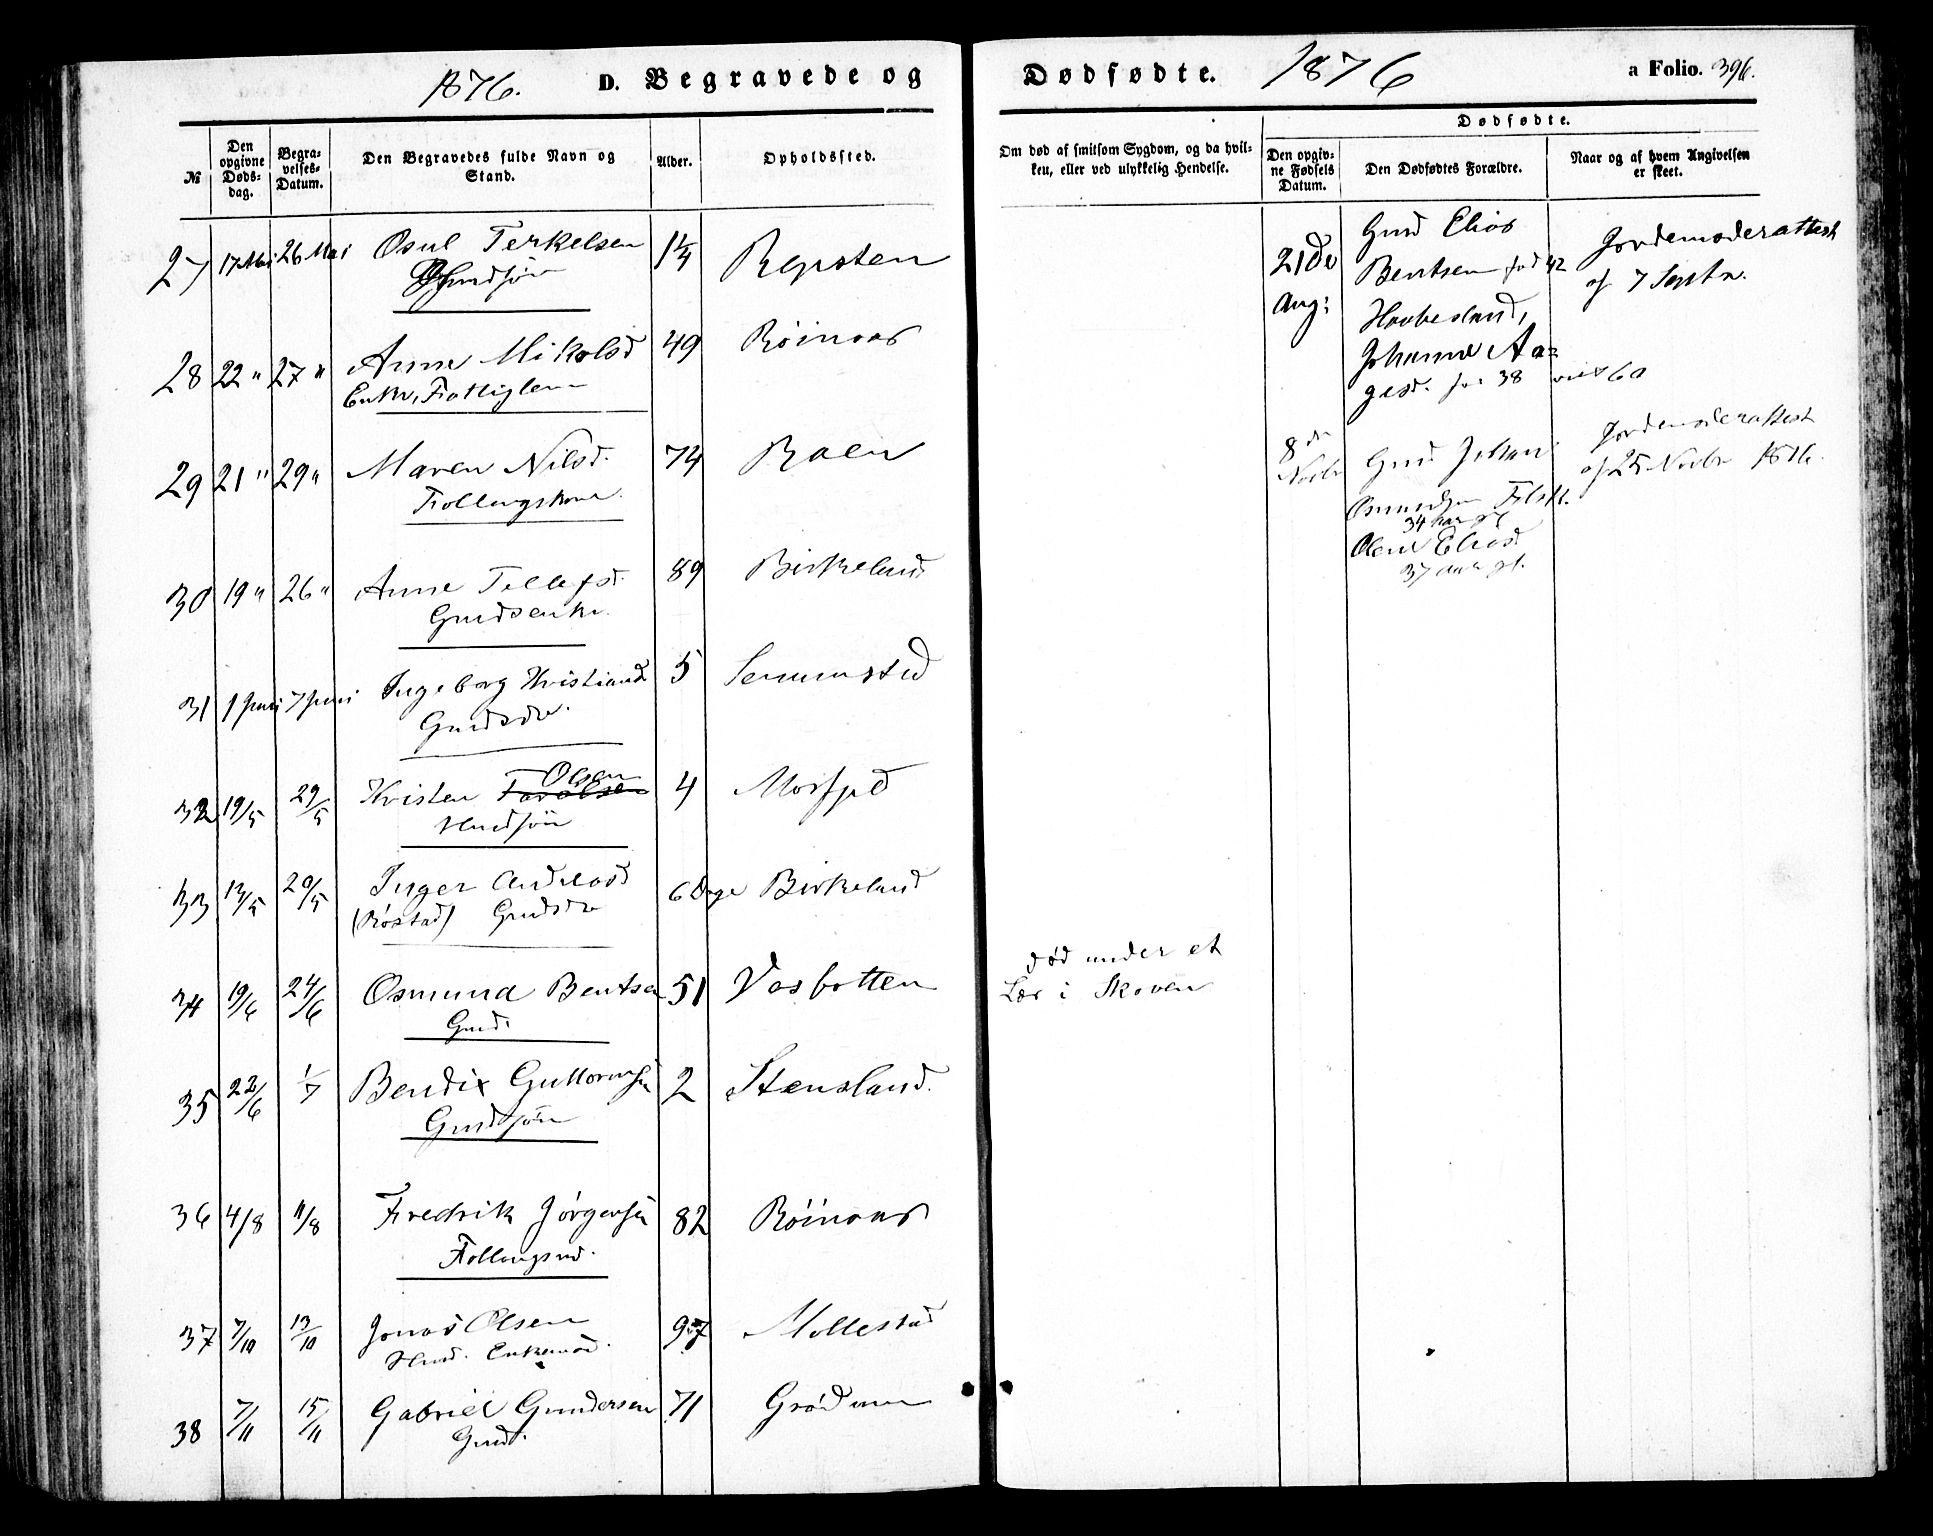 1876. D. Begravede og
№
Den opgivne Døds-dag.
Begra-velses-Datum.
Den Begravedes fulde Navn og Stand.
Alder.
Opholdssted.
27 17 Mai 26 Mai Osul Terkelsen 1¼ Repsten
28 22 " 27 " Anne Mikalsd 49 Röinaas
Enke, Fattiglem
29 21 " 29 " Maren Nilsd. 74 Raen
Follaugskone.
30 19 " 26 " Anne Tellefsd. 89 Birkeland
Gmdsenke.
31 1 Juni 7 Juni Ingeborg Kristiansd 5 Senumstad
Gmdsdr.
Olsen
32 19/5 29/5 Kristen 4 Mosfjed
Hmdsön
33 13/5 20/5 Inger Andreasd 6 Dage Birkeland
(Röstad) Gmdsdr
34 19/6 24/6 Osmund Bentsen 51 Vasbotten
Gmd.
35 22/6 1/7 Bendix Guttormsen 2 Stensland.
Gmdsön
36 4/8 11/8 Fredrik Jörgensen 82 Röinaas
Follaugsmd.
37 7/10 13/10 Jonas Olsen 97 Mollestad
Hmd. Enkemand.
38 7/11 15/11 Gabriel Gundersen 71 Grödum
Gmd.
Dødfødte. 1876 a Folio. 396.
Om død af smitsom Sygdom, og da hvil-
ken, eller ved ulykkelig Hendelse.
Dødfødte.
Den opgiv-ne Fødsels Datum.
Den Dødfødtes Forældre.
Naar og af hvem Angivelsen er skeet.
død under et
Læs i Skoven
21de
Aug:
Gmd Elias
Bentsen fød 42
Haabesland,
Johanne Aa-
gesd. fød 38
Jordemoderattest
af 7 Septbr.
8de
Novbr
Gmd. Johan
Osmundsen
34 Aar gl
Olene Eliasd.
37 Aar gl.
Jordemoderattest
af 25 Novbr 1876.